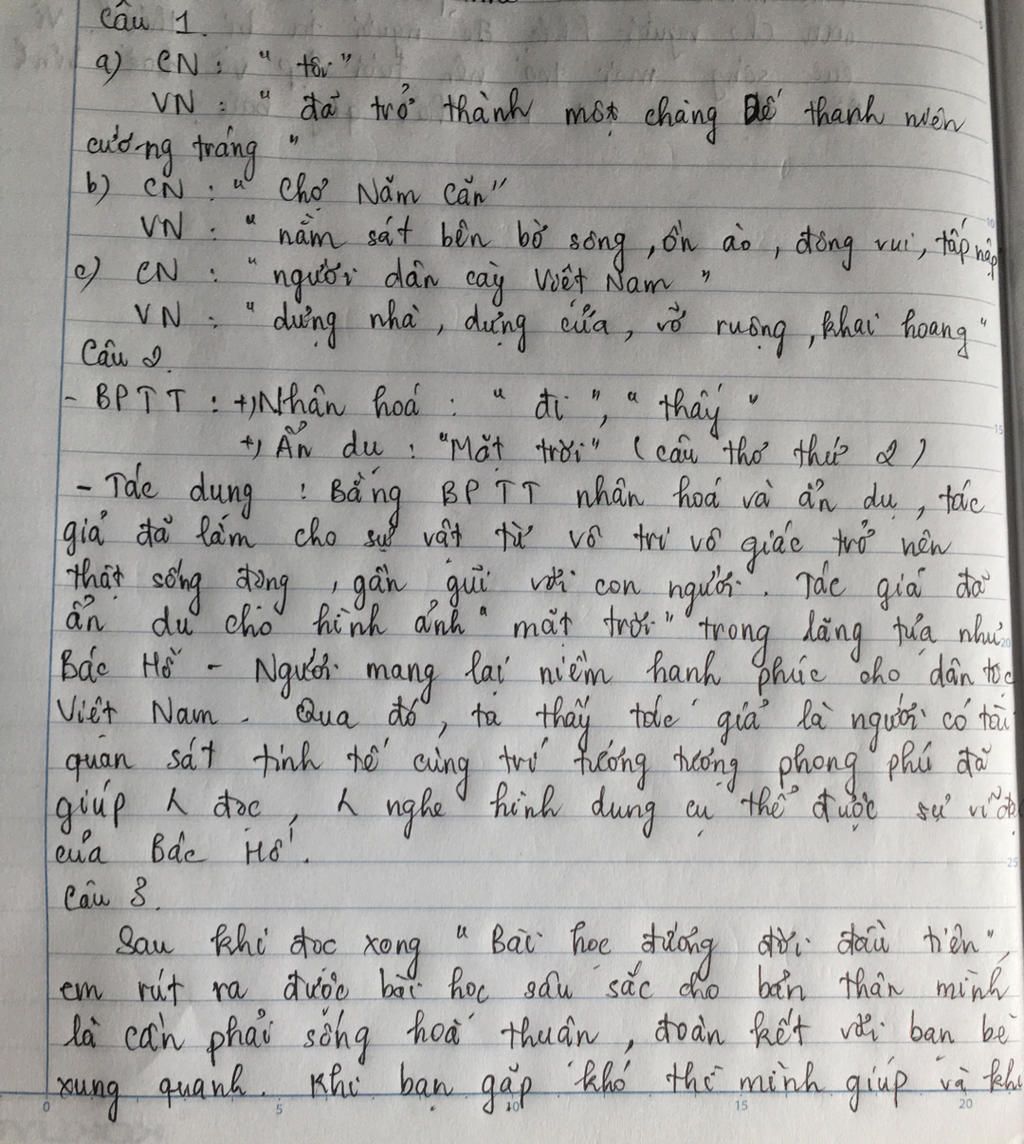 Câu 1.
a) CN : " tôi "
VN : " đã trở thành một chàng Dế thanh niên
cường tráng "
b) CN : " Chợ Năm Căn "
VN : " nằm sát bên bờ sông , ồn ào , đông vui , tấp nập
c) CN : " người dân cày Việt Nam "
VN : " dựng nhà , dựng cửa , vỡ ruộng , khai hoang "
Câu 2.
- BPTT : +) Nhân hoá : " đi " , " thấy "
+) Ẩn dụ : " Mặt trời " ( câu thơ thứ 2 )
- Tác dụng : Bằng BPTT nhân hoá và ẩn dụ , tác
giả đã làm cho sự vật từ vô tri vô giác trở nên
thật sống động , gần gũi với con người . Tác giả đã
ẩn dụ cho hình ảnh " mặt trời " trong lăng tựa như
Bác Hồ - Người mang lại niềm hạnh phúc cho dân tộc
Việt Nam . Qua đó , ta thấy tác giả là người có tài
quan sát tinh tế cùng trí tưởng tượng phong phú đã
giúp đọc , nghe hình dung cụ thể được sự vĩ đại
của Bác Hồ .
Câu 3.
Sau khi đọc xong " Bài học đường đời đầu tiên " ,
em rút ra được bài học sâu sắc cho bản thân mình
là cần phải sống hoà thuận , đoàn kết với bạn bè
xung quanh . Khi bạn gặp khó thì mình giúp và khi